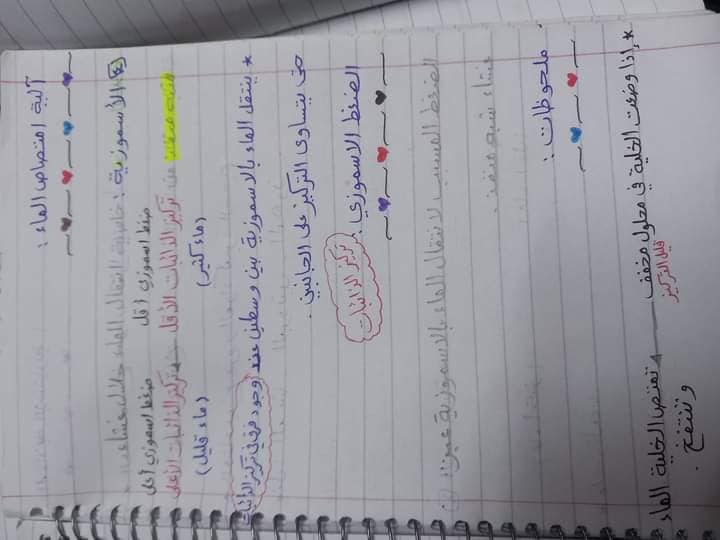 آلية امتصاص الماء :
④ الأسموزية : خاصية انتقال الماء خلال غشاء
ضغط اسموزي أقل ضغط اسموزي أعلى
شبه منفذ من تركيز الذائبات الأقل ← تركيز الذائبات الأعلى
(ماء كثير) (ماء قليل)
* ينتقل الماء بالاسموزية بين وسطين عند وجود فرق في تركيز الذائبات
حتى يتساوى التركيز على الجانبين .
تركيز الذائبات
الضغط الاسموزي :
الضغط المسبب لانتقال الماء بالاسموزية عبر
غشاء شبه منفذ .
ملحوظات :
* إذا وضعت الخلية في محلول مخفف ← تمتص الخلية الماء
قليل التركيز
وتنتفخ .